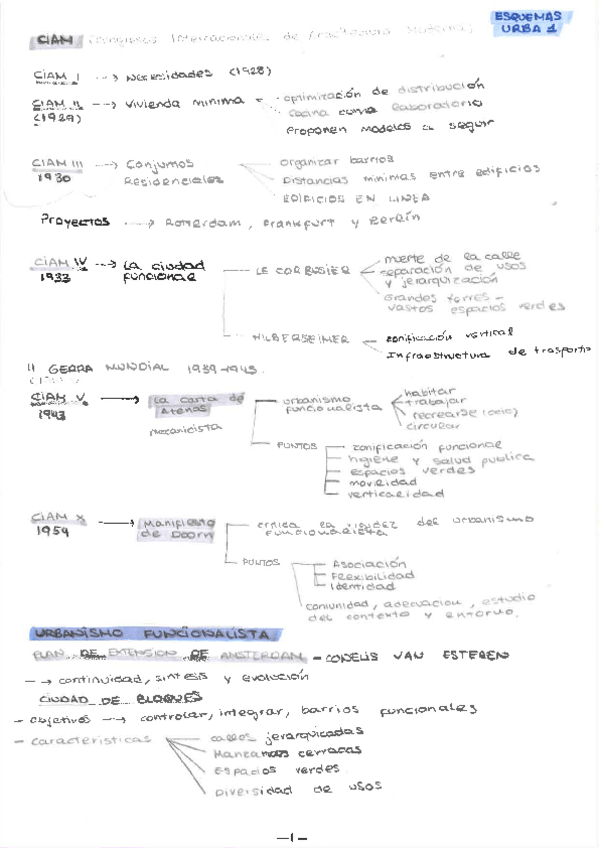 ESQUEMAS
URBA 1
CIAM (Congresos Internacionales de Arquitectura Moderna)
CIAM I → Necesidades (1928)
CIAM II → Vivienda minima = optimización de distribución
(1929) cocina como laboratorio
Proponen modelos a seguir
CIAM III → Conjuntos organizar barrios
1930 Residenciales Distancias minimas entre edificios
EDIFICIOS EN LINEA
Proyectos → Rotterdam, Frankfurt y Berlín
CIAM IV → La ciudad LE CORBUSIER muerte de la calle
1933 funcional separación de usos
y jerarquización
Grandes torres -
vastos espacios verdes
HILBERSEIMER zonificación vertical
Infraestructura de trasporte
II GERRA MUNDIAL 1939-1945.
CIAM V → La Carta de urbanismo habitar
1943 Atenas funcionalista trabajar
mecanicista recrearse (ocio)
circular
PUNTOS zonificación funcional
higiene y salud publica
espacios verdes
movilidad
verticalidad
CIAM X → Manifiesto critica la rigidez del urbanismo
1954 de Doorn funcionalista
PUNTOS Asociación
Flexibilidad
Identidad
comunidad, adecuacion, estudio
del contexto y entorno.
URBANISMO FUNCIONALISTA
PLAN DE EXTENSION DE AMSTERDAM - CONELIS VAN ESTEREN
--→ continuidad, sintesis y evolución
CIUDAD DE BLOQUES
- objetivos --→ controlar, integrar, barrios funcionales
- caracteristicas calles jerarquizadas
Manzanas cerradas
Espacios verdes
Diversidad de usos
-1-